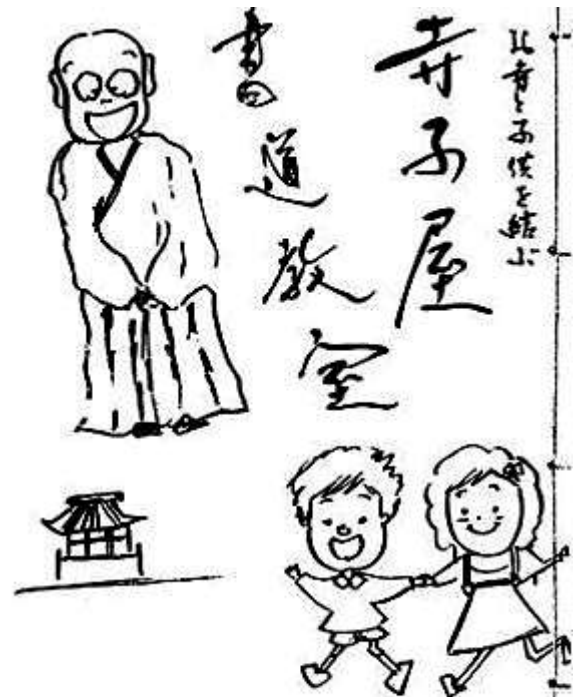 お寺と子供を結ぶ
寺子屋
書道教室